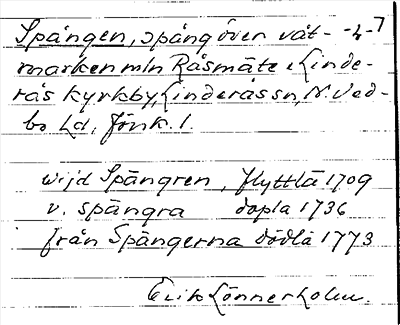 Spången, spång över våt- -4-7
marken mln Råsmäte o Linde-
rås kyrkby, Linderås sn, N. Ved-
bo hd, Jönk. l.
wijd Spångren, flyttlä 1709
v. spångra dopla 1736
från Spångerna dödlä 1773
Erik Lönnerholm.